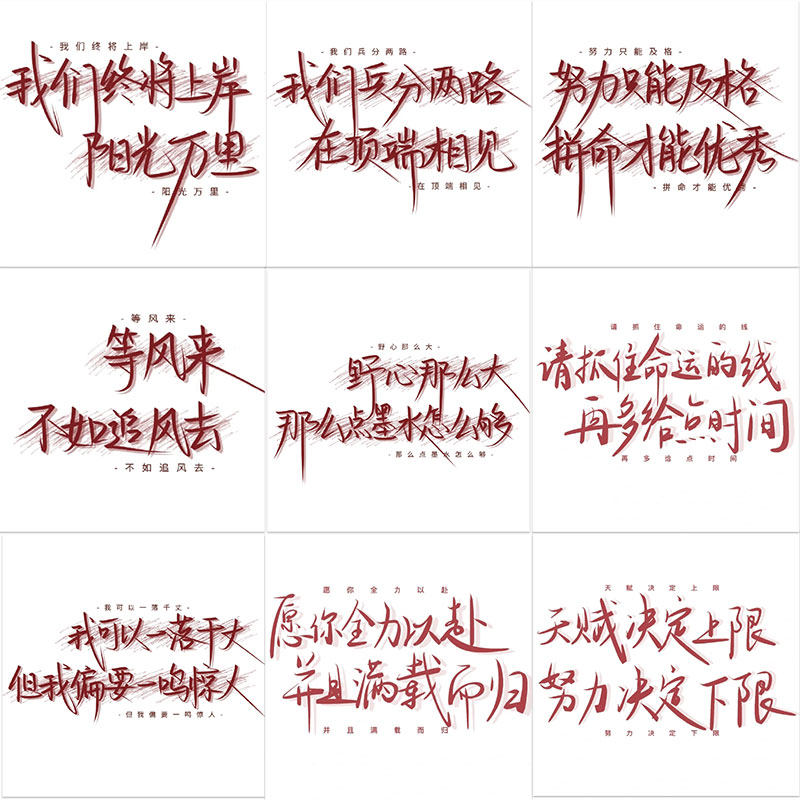 - 我们终将上岸 -
我们终将上岸
阳光万里
- 阳光万里 -
- 我们兵分两路 -
我们兵分两路
在顶端相见
- 在顶端相见 -
- 努力只能及格 -
努力只能及格
拼命才能优秀
- 拼命才能优秀 -
- 等风来 -
等风来
不如追风去
- 不如追风去 -
- 野心那么大 -
野心那么大
那么点墨水怎么够
- 那么点墨水怎么够 -
请抓住命运的线
请抓住命运的线
再多给点时间
再多给点时间
- 我可以一落千丈 -
我可以一落千丈
但我偏要一鸣惊人
- 但我偏要一鸣惊人 -
愿你全力以赴
愿你全力以赴
并且满载而归
并且满载而归
天赋决定上限
天赋决定上限
努力决定下限
努力决定下限